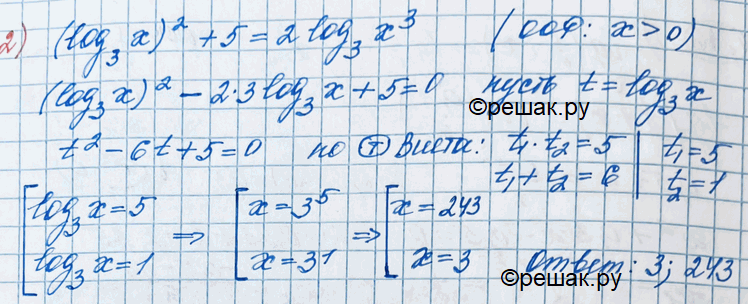 2) (log₃ x)² + 5 = 2 log₃ x³ (ООФ: x > 0)
(log₃ x)² − 2·3 log₃ x + 5 = 0 пусть t = log₃ x
©решак.ру
t² − 6t + 5 = 0 по Ⓣ Виета: t₁ · t₂ = 5 | t₁ = 5
t₁ + t₂ = 6 | t₂ = 1
[ log₃ x = 5 ⇒ [ x = 3⁵ ⇒ [ x = 243
log₃ x = 1 x = 3¹ x = 3 Ответ: 3; 243
©решак.ру